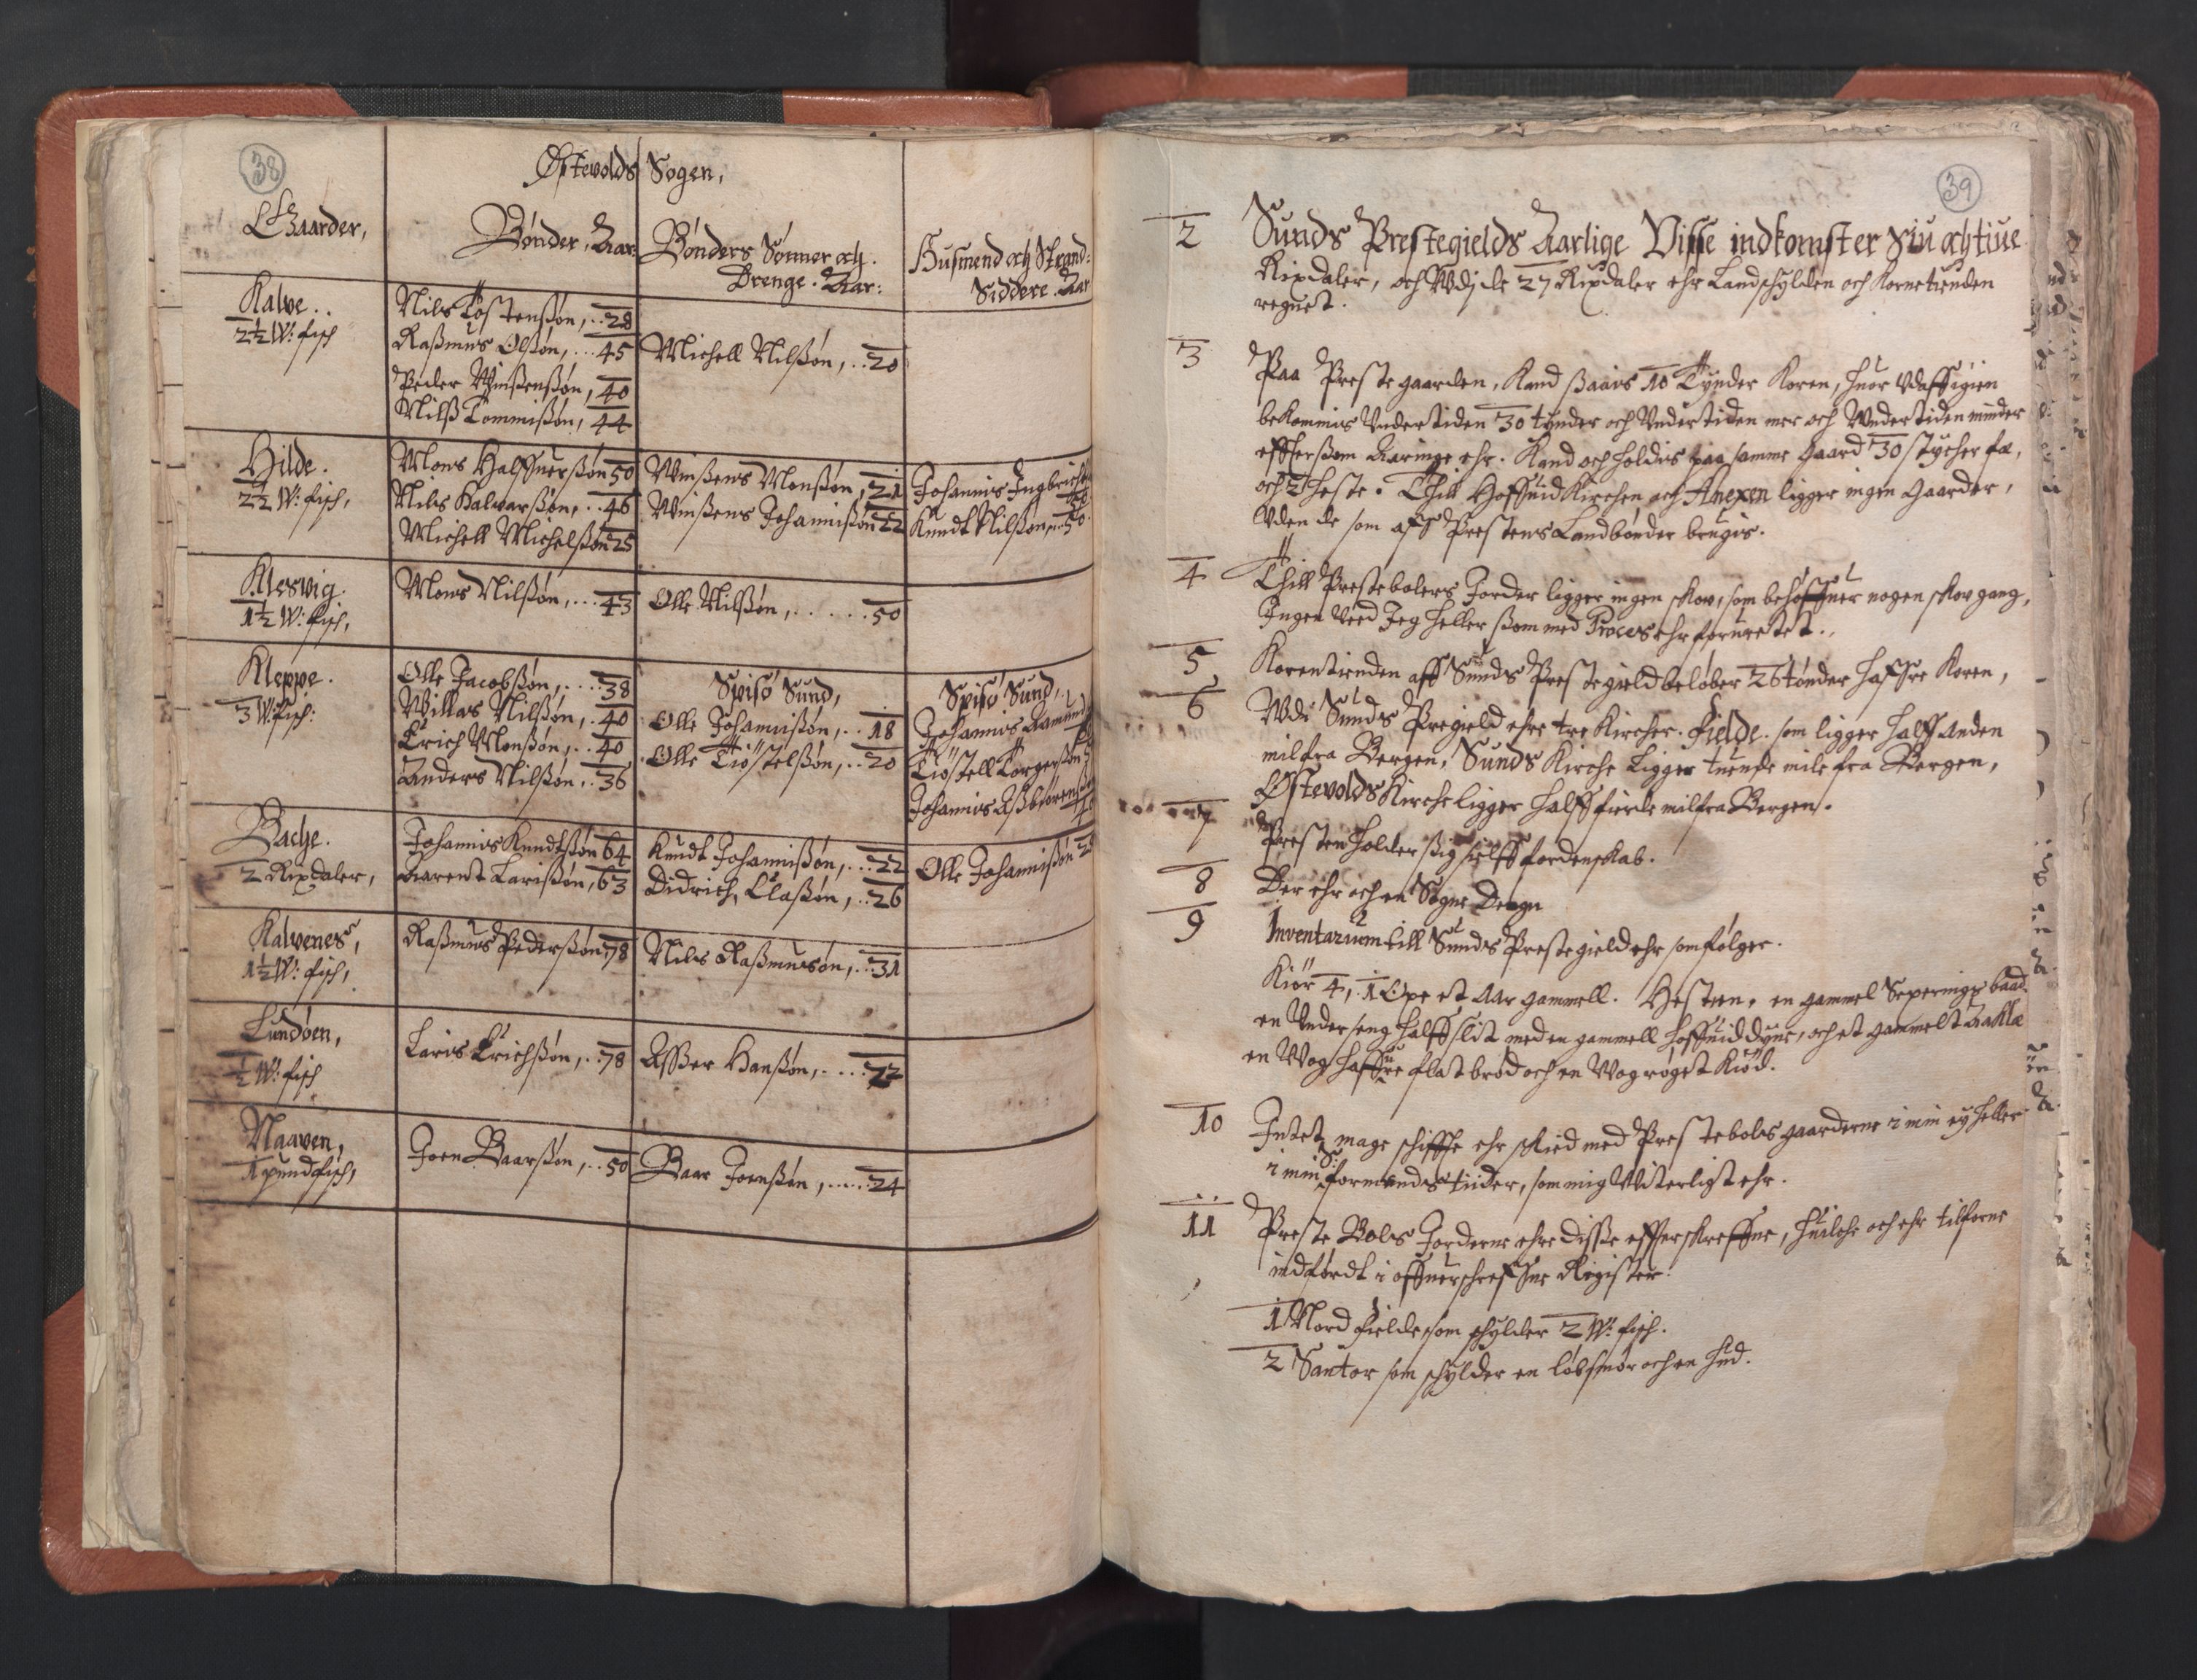 38
Østevolds Sogen,
Gaarder,
Bønder, Aar:
Bønders Sønner och
Drenge. Aar:
Husmend och Strand:
Siddere. Aar
Kalve..
2½ W: fisch
Nils Tostensøn,..28
Rasmus Olsøn,...45
Peder Winsensøn, 40
Nilss Tommissøn, 44
Michell Nilsøn,..20
Hilde.
2½ W: fisch,
Mons Halffuersøn 50
Nils Kalvarsøn,..46
Michell Michelsøn 25
Winsens Monsøn, 21
Winsens Johannisøn 22
Johannis Ingbricts
Knudt Nilsøn,..50.
Kleswig.
1½ W: fisch,
Mons Nilsøn,...43
Olle Nilsøn,......50
Kleppe.
3 W: fisch:
Olle Jacobsøn,....38
Willas Nilsøn,..40
Erich Monsøn,..40
Anders Nilsøn,..36
Spisø Sund,
Olle Johannisøn,..18
Olle Tiøstelsøn,..20
Spisø Sund,
Johannis Aamund
Tiøstell Torgersøn
Johannis Asbiørensøn
Bache.
2 Rixdaler,
Johannis Knudtsøn 64
Aarent Larisøn, 63
Knudt Johannisøn,...22
Didrich Clasøn,..26
Olle Johannisøn 28
Kalvenes,
1½ W: fisch,
Rasmus Pedersøn, 78
Nils Rasmusøn,..31
Lundøen,
½ W: fisch
Laris Erichsøn,..78
Asser Hansøn,....22
Naaven,
1 pund fisch,
Joen Baarsøn,..50
Baar Joensøn,.....24
39
2 Sunds Prestegields Aarlige Visse indkomster siu och tiue
Rixdaler, och Udj de 27 Rixdaler ehr Landschylden och Kornetienden
regnet.
3 Paa Prestegaarden, Kand saais 10 Tynder Koren, huor Udaffigien
bekommis Undertiden 30 tynder och Undertiden mer och Undertiden minder
effthersom Aaringe ehr. Kand och holdis paa samme Gaard 30 stycher fæ,
och 2 heste. Thill Hoffuid Kirchen och Anexen ligger ingen Gaarder,
Uden de som aff Prestens Landbønder brugis.
4 Thill Prestebolers Jorder ligger ingen skov, som behøffuer nogen skovgang,
Ingen Veed Jeg heller som med Proces ehr foruretet..
5 Korentienden aff Sunds Prestegield beløber 26 tønder haffre Koren,
6 Udi Sunds Pregield ehre tre Kircher. Fielde. som ligger halff anden
mil fra Bergen, Sunds Kirche Ligger tuende mile fra Bergen,
Østevolds Kirche ligger halff fierde mil fra Bergen.
7 Presten holder sig sielff fordenskab.
8 Der ehr och en Sogne Degn
9 Inventarium till Sunds Prestegield ehr som følger.
Kiør 4, 1 Oxe et Aar gammell. Hesten, en gammel Seperings baad
en Underseng halff slit med en gammell hoffuiddyne, och et gammelt Aaklæ
en Wog haffre flatbrød och en Wog røget Kiød.
10 Intet mage schiffte ehr skied med Prestebols gaarderne i min ey heller
i min S: formands tiider, som mig Witerligt ehr.
11 Preste Bols Jorderne ehre disse effterskreffne, huilche och ehr tilforne
indførdt i offuerschreffne Register.
1 Nord Fielde som schylder 2 W: fisch.
2 Santor som schylder en løb smør och en hud.